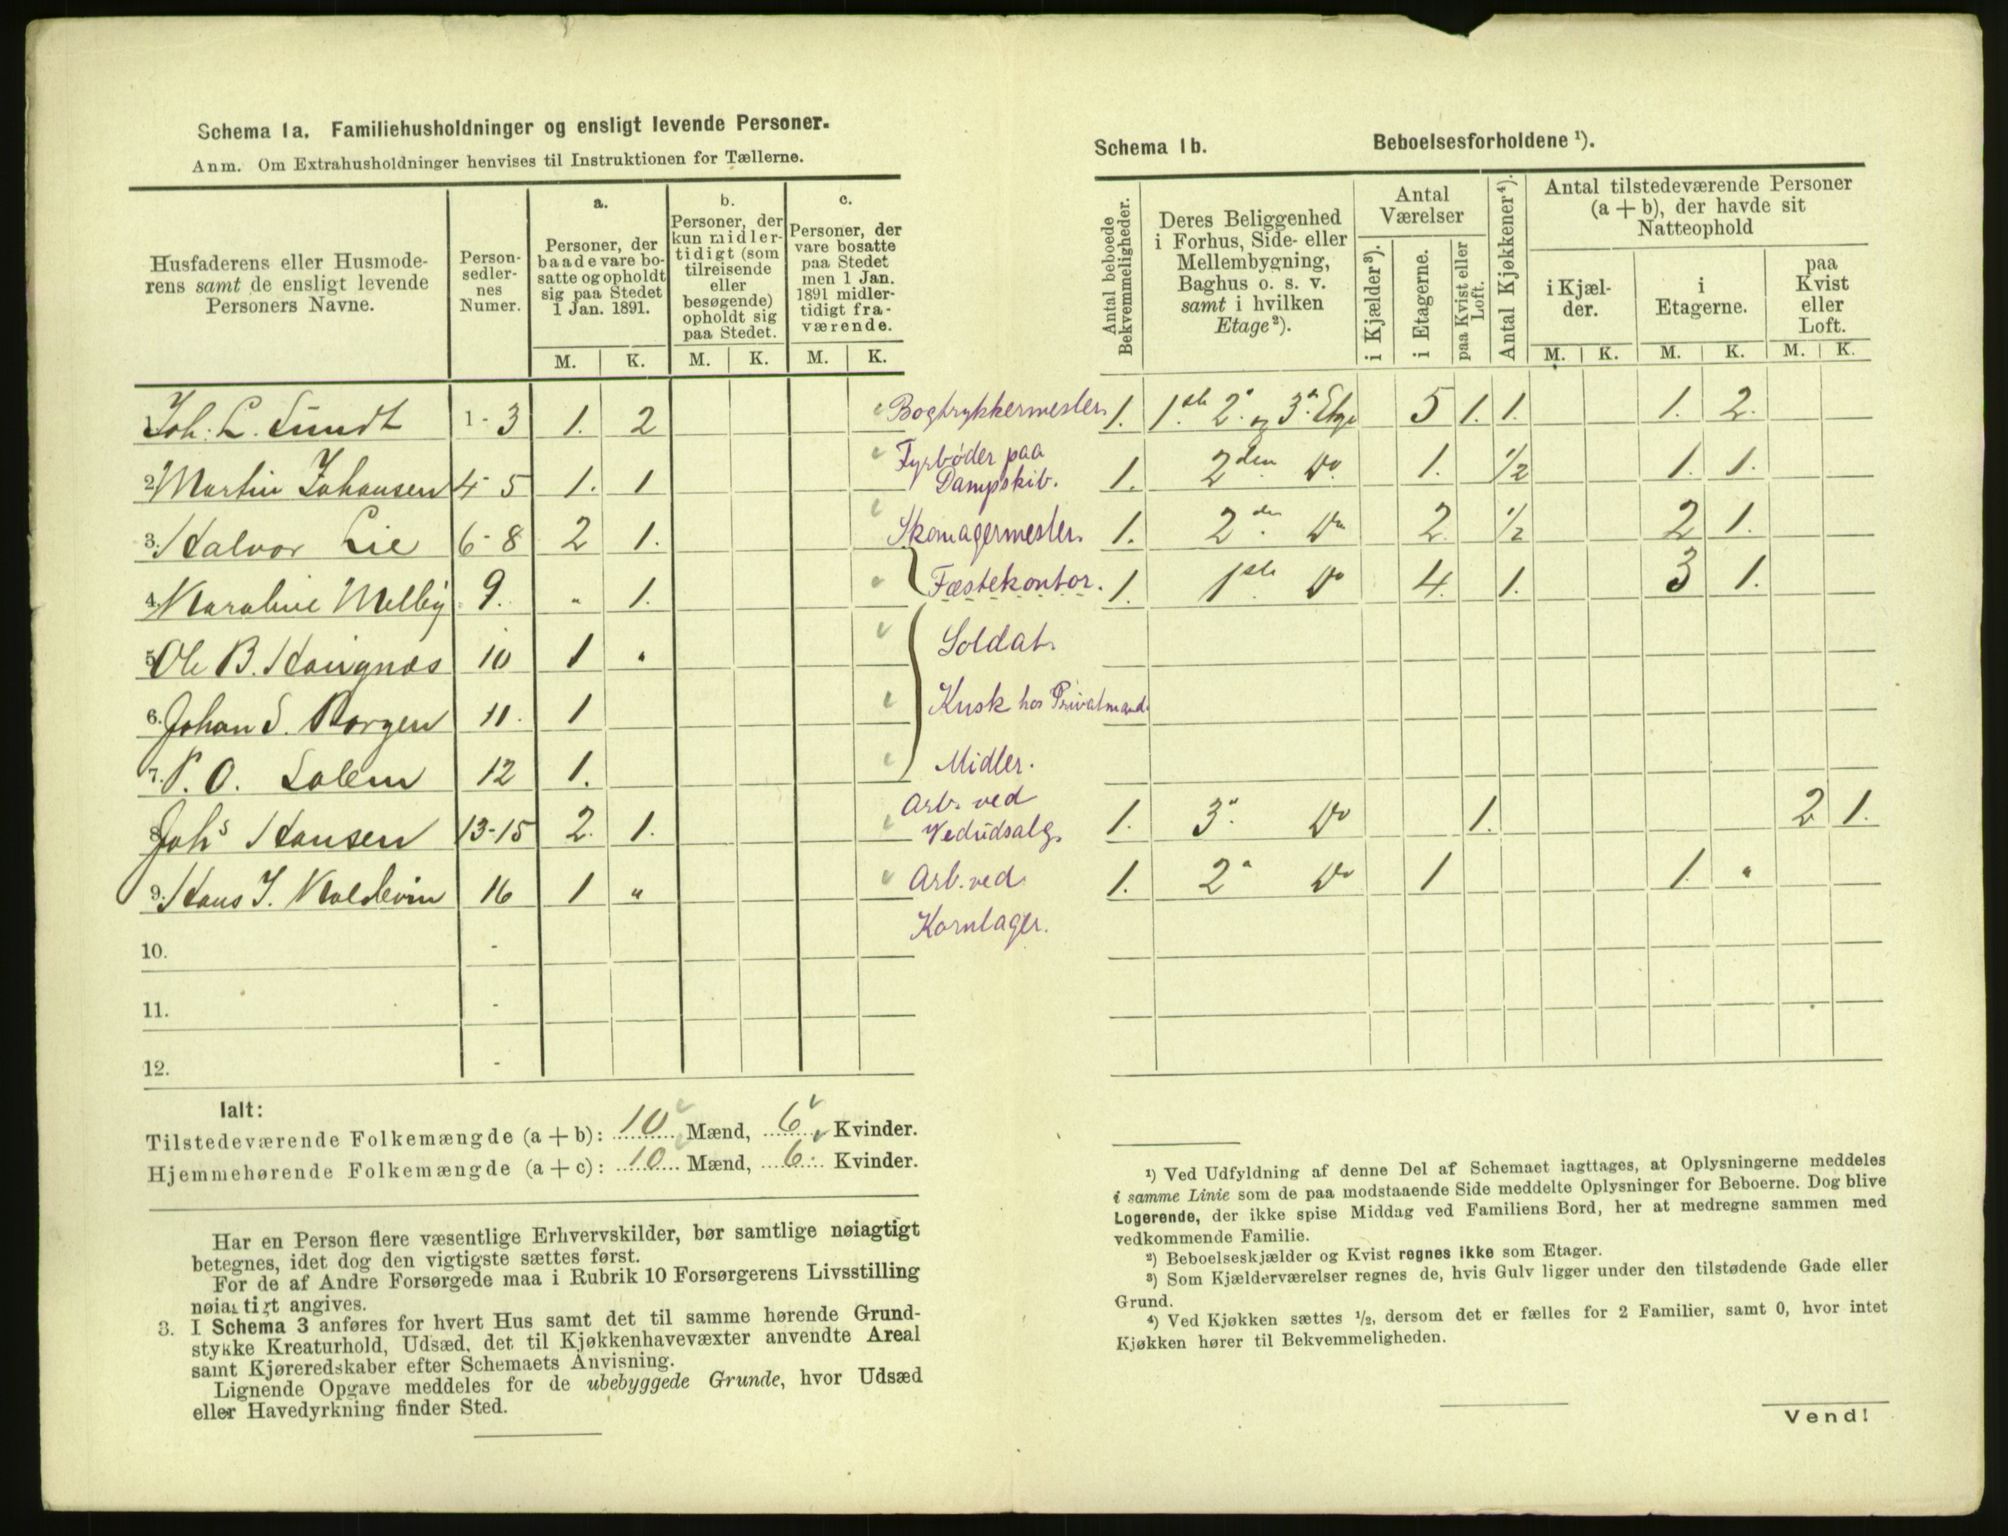 Schema 1a. Familiehusholdninger og ensligt levende Personer.
Anm. Om Extrahusholdninger henvises til Instruktionen for Tællerne.
Husfaderens eller Husmoderens samt de ensligt levende Personers Navne.
Person-sedlernes Numer.
a.
Personer, der baade vare bosatte og opholdt sig paa Stedet 1 Jan. 1891.
b.
Personer, der kun midlertidigt (som tilreisende eller besøgende) opholdt sig paa Stedet.
c.
Personer, der vare bosatte paa Stedet men 1 Jan. 1891 midlertidigt fraværende.
M. K. M. K. M. K.
1. Joh. L. Sundt 1-3 1. 2 Bogtrykkermester
2. Martin Johansen 4-5 1. 1 Fyrbøder paa Dampskib.
3. Halvor Lie 6-8 2 1. Skomagermester
4. Karoline Melby 9. " 1. Fæstekontor.
5. Ole B. 10 1 " Soldat.
6. Johan S. Borgen 11. 1 Kusk hos Privatmand.
7. P. O. Solem 12 1. Midler.
8. Johs Hansen 13-15 2. 1. Arb. ved Vedudsalg.
9. Hans J. Koldevin 16 1 " Arb. ved Kornlager.
10. -
11. -
12. -
Ialt:
Tilstedeværende Folkemængde (a + b): 10 Mænd, 6 Kvinder.
Hjemmehørende Folkemængde (a + c): 10 Mænd, 6 Kvinder.
Har en Person flere væsentlige Erhvervskilder, bør samtlige nøiagtigt
betegnes, idet dog den vigtigste sættes først.
For de af Andre Forsørgede maa i Rubrik 10 Forsørgerens Livsstilling
nøiagtigt angives.
3. I Schema 3 anføres for hvert Hus samt det til samme hørende Grund-
stykke Kreaturhold, Udsæd, det til Kjøkkenhavevæxter anvendte Areal
samt Kjøreredskaber efter Schemaets Anvisning.
Lignende Opgave meddeles for de ubebyggede Grunde, hvor Udsæd
eller Havedyrkning finder Sted.
Schema 1b. Beboelsesforholdene ¹).
Antal beboede Bekvemmeligheder.
Deres Beliggenhed i Forhus, Side- eller Mellembygning, Baghus o. s. v. samt i hvilken Etage²).
Antal Værelser
i Kjælder³).
i Etagerne.
paa Kvist eller Loft.
Antal Kjøkkener⁴).
Antal tilstedeværende Personer (a + b), der havde sit Natteophold
i Kjælder.
i Etagerne.
paa Kvist eller Loft.
M. K. M. K. M. K.
1. 1ste 2. og 3. Etge 5 1. 1. 1. 2.
1. 2den Do. 1. 1/2 1. 1.
1. 2den Do 2. 1/2 2 1.
1. 1ste Do 4. 1. 3 1.
1. 3. Do 1. 2 1.
1. 2" Do 1 1. "
¹) Ved Udfyldning af denne Del af Schemaet iagttages, at Oplysningerne meddeles
i samme Linie som de paa modstaaende Side meddelte Oplysninger for Beboerne. Dog blive
Logerende, der ikke spise Middag ved Familiens Bord, her at medregne sammen med
vedkommende Familie.
²) Beboelseskjælder og Kvist regnes ikke som Etager.
³) Som Kjælderværelser regnes de, hvis Gulv ligger under den tilstødende Gade eller
Grund.
⁴) Ved Kjøkken sættes ¹/₂, dersom det er fælles for 2 Familier, samt 0, hvor intet
Kjøkken hører til Bekvemmeligheden.
Vend!